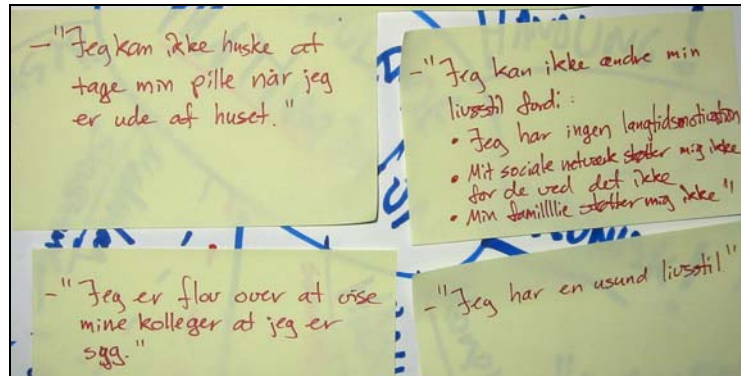 -"Jeg kan ikke huske at
tage min pille når jeg
er ude af huset."
-"Jeg kan ikke ændre min
livsstil fordi:
• Jeg har ingen langtidsmotivation
• Mit sociale netværk støtter mig ikke
for de ved det ikke
• Min famillllie støtter mig ikke"
-"Jeg er flov over at vise
mine kolleger at jeg er
syg."
-"Jeg har en usund livsstil"